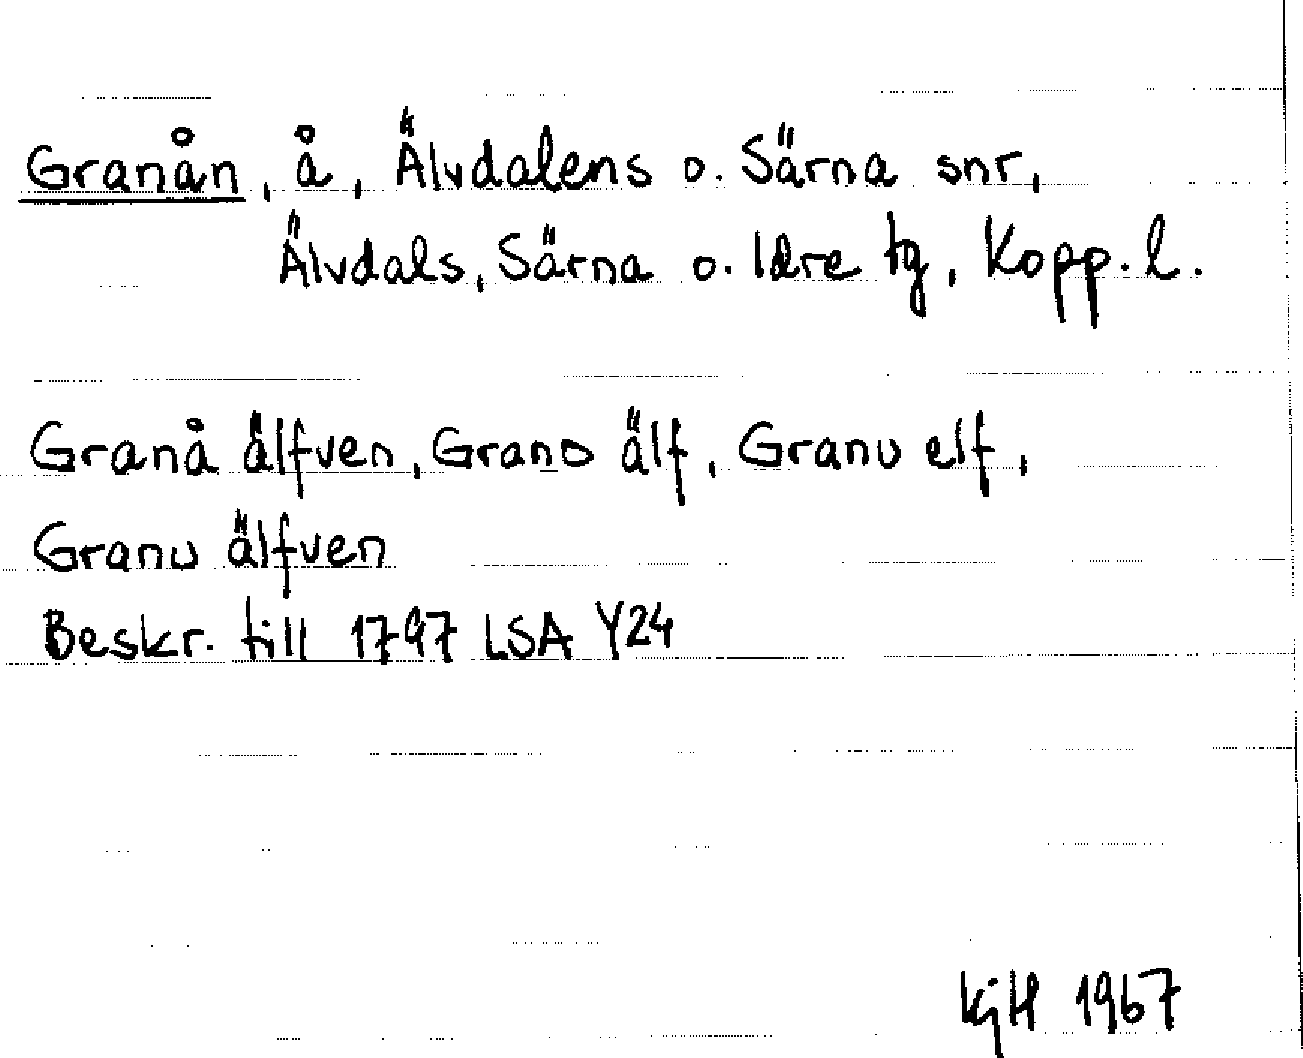 Granån, å, Älvdalens o. Särna snr,
Älvdals, Särna o. Idre tg, Kopp. l.
Granå älfven, Grano älf, Granu elf,
Granu älfven
Beskr. till 1797 LSA Y24
KjH 1967